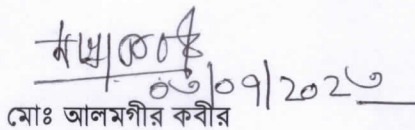 ০৩/০৭/২০২৩
মোঃ আলমগীর কবীর